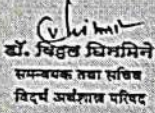 डॉ. विठ्ठल घिनमिने
समन्वयक तथा सचिव
विदर्भ अर्थशास्त्र परिषद